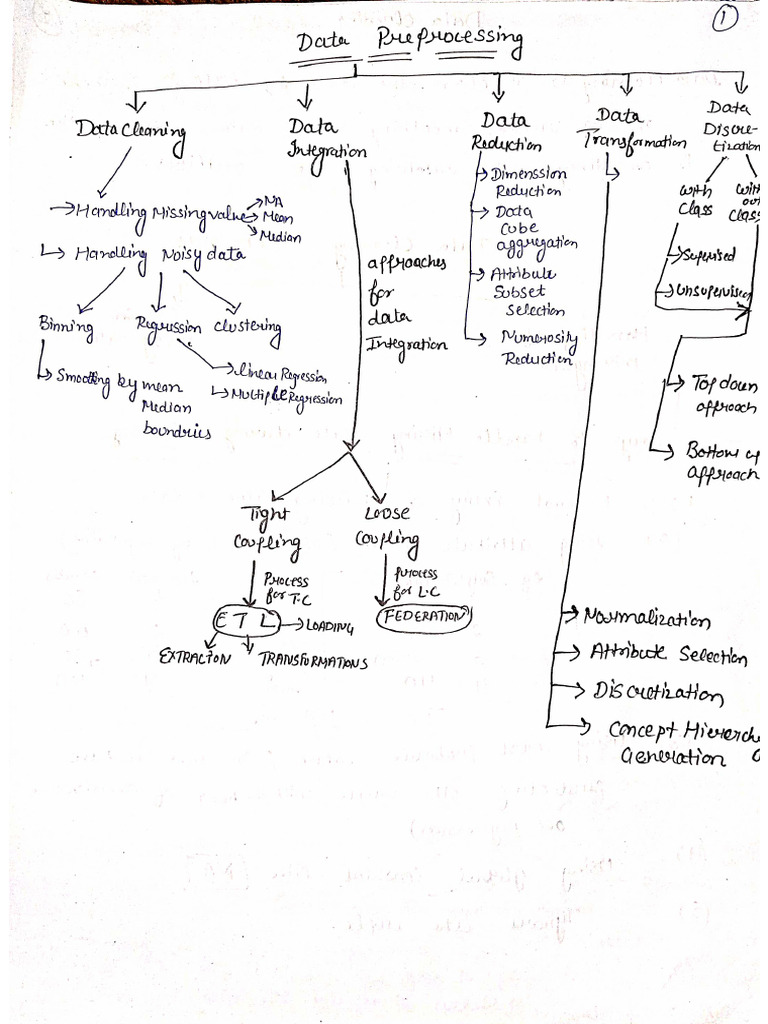 1
Data Preprocessing
Data Cleaning
→Handling Missing value
NA
Mean
Median
Handling Noisy data
Binning
Regression
clustering
Smoothing by mean
Median
boundries
linear Regression
Multiple Regression
Data
Integration
approaches
for
data
Integration
Tight
Coupling
Process
for T.C
ETL
LOADING
EXTRACTON
TRANSFORMATIONS
Loose
Coupling
process
for L.C
FEDERATION
Data
Reduction
Dimenssion
Reduction
Data
Cube
aggregation
Attribute
Subset
Selection
Numerosity
Reduction
Data
Transformation
Normalization
Attribute Selection
Discretization
Concept Hierarch
Generation
Data
Discre-
tization
With
Class
With
out
Class
Supervised
Unsupervised
Top down
approach
Bottom up
approach